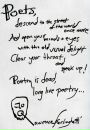 Poets,
descend to the street
of the world
once more
And open your minds & eyes
with the old visual delight
Clear your throat
and speak up!
Poetry is dead,
long live poetry...